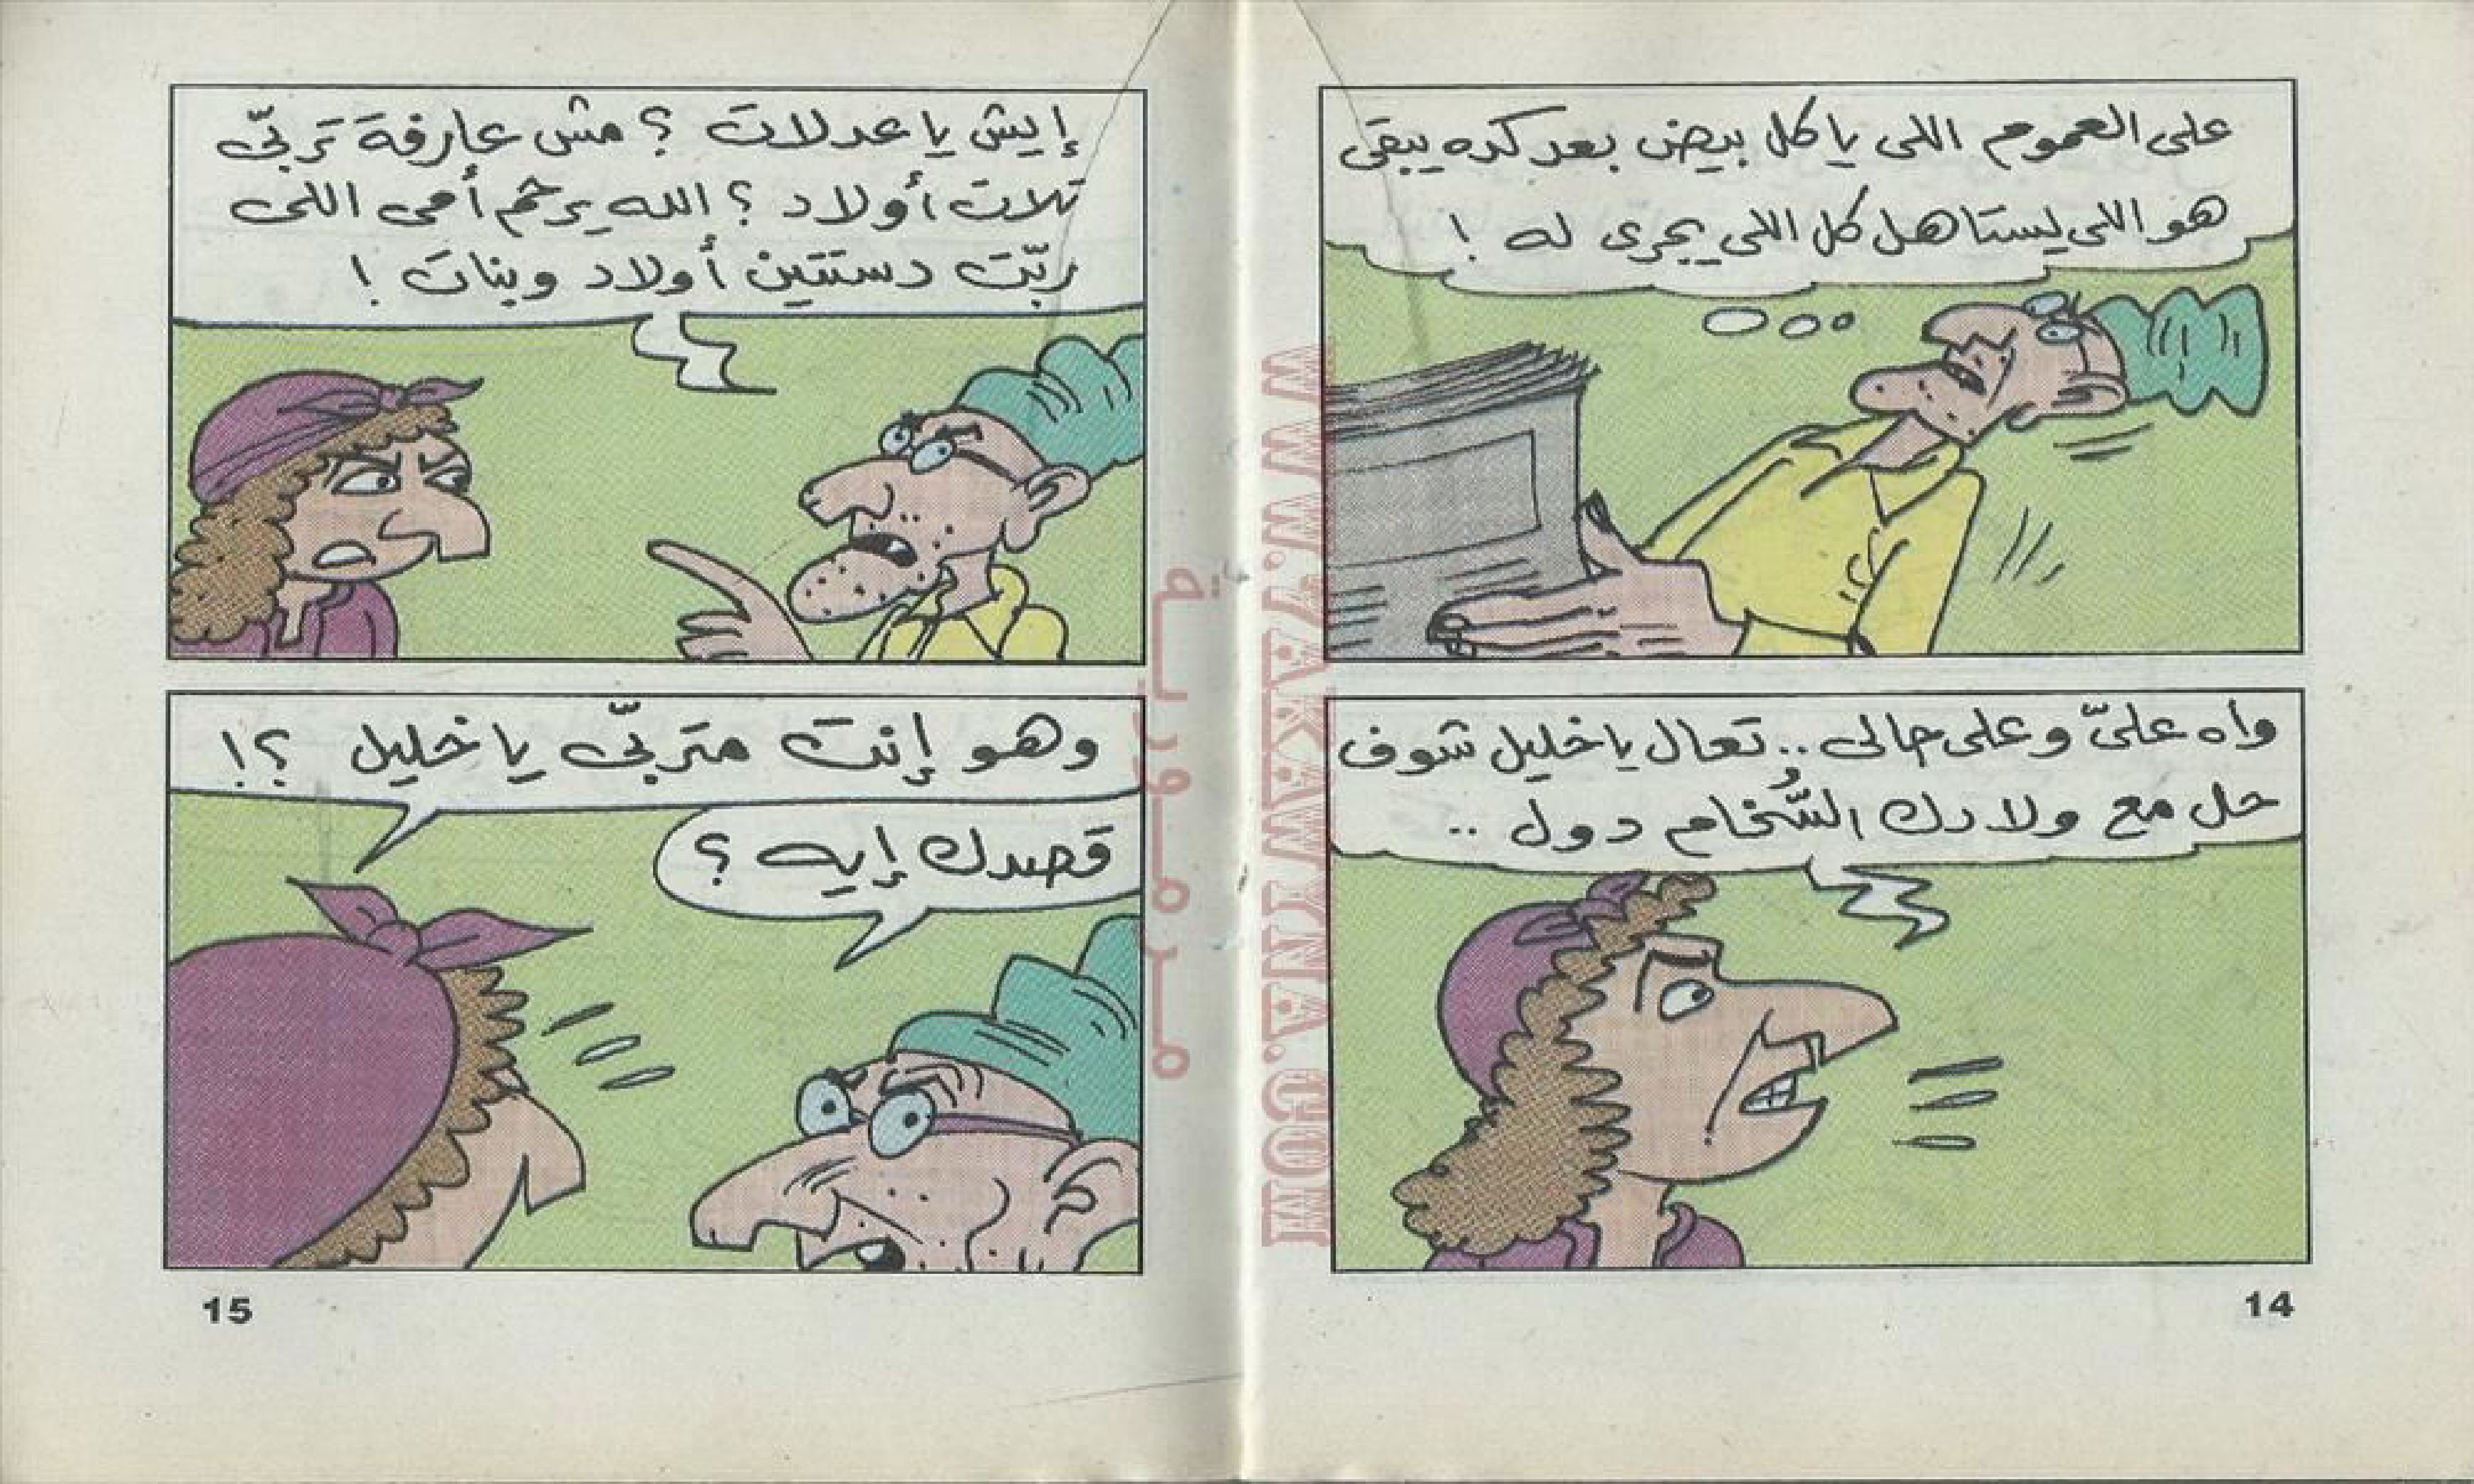 على العموم اللى ياكل بيض بعد كده يبقى
هو اللى يستاهل كل اللى يجرى له !
واه علىّ وعلى حالى .. تعال يا خليل شوف
حل مع ولادك السُّخام دول ..
14
إيش يا عدلات ؟ مش عارفة تَربّى
تلات أولاد ؟ الله يرحم أمى اللى
ربّت دستتين أولاد وبنات !
وهو إنت متربّى يا خليل ؟!
قصدك إيه ؟
15
WWW.VAKAWKNA.COM